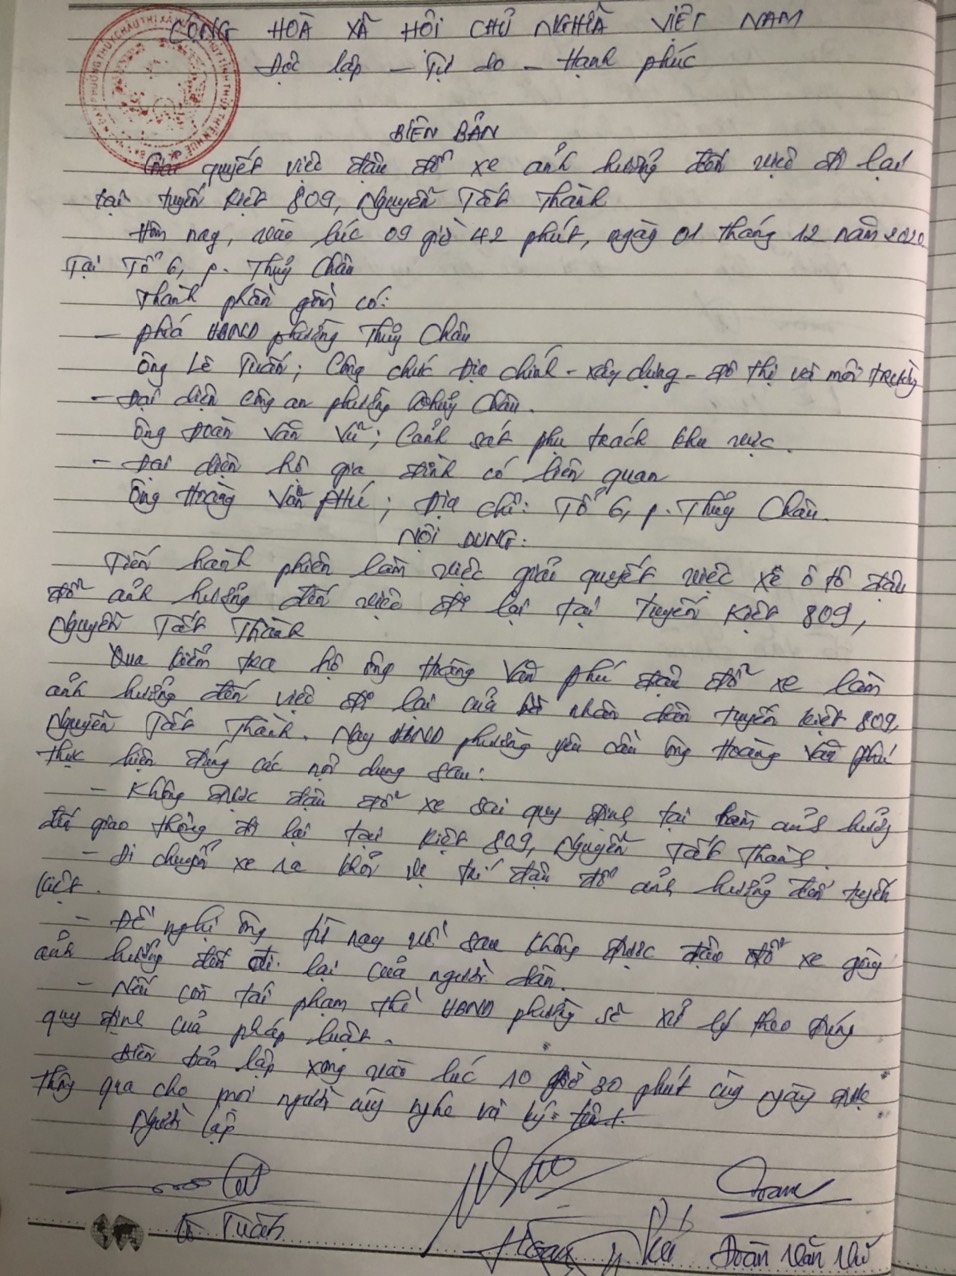 CỘNG HOÀ XÃ HỘI CHỦ NGHĨA VIỆT NAM
Độc lập - Tự do - Hạnh phúc
BIÊN BẢN
Giải quyết việc đậu đỗ xe ảnh hưởng đến việc đi lại
tại tuyến Kiệt 809, Nguyễn Tất Thành
Hôm nay, vào lúc 09 giờ 42 phút, ngày 01 tháng 12 năm 2020
Tại Tổ 6, p. Thuỷ Châu
Thành phần gồm có:
- Phía UBND phường Thuỷ Châu
Ông Lê Tuấn; Công chức Địa chính - xây dựng - đô thị và môi trường
- Đại diện công an phường Thuỷ Châu.
Ông Đoàn Văn Vũ; Cảnh sát phụ trách khu vực.
- Đại diện hộ gia đình có liên quan
Ông Hoàng Văn Phú; Địa chỉ: Tổ 6, p. Thuỷ Châu.
NỘI DUNG:
Tiến hành phiên làm việc giải quyết việc xe ô tô đậu
đỗ ảnh hưởng đến việc đi lại tại tuyến Kiệt 809,
Nguyễn Tất Thành
Qua kiểm tra hộ ông Hoàng Văn Phú đậu đỗ xe làm
ảnh hưởng đến việc đi lại của nhân dân tuyến kiệt 809,
Nguyễn Tất Thành. Nay UBND phường yêu cầu ông Hoàng Văn Phú
thực hiện đúng các nội dung sau:
- Không được đậu đỗ xe sai quy định tại làm ảnh hưởng
đến giao thông đi lại tại Kiệt 809, Nguyễn Tất Thành.
- Di chuyển xe ra khỏi vị trí đậu đỗ ảnh hưởng đến tuyến
kiệt.
- Đề nghị ông từ nay về sau không được đậu đỗ xe gây
ảnh hưởng đến đi lại của người dân.
- Nếu còn tái phạm thì UBND phường sẽ xử lý theo đúng
quy định của pháp luật.
Biên bản lập xong vào lúc 10 giờ 30 phút cùng ngày được
thông qua cho mọi người cùng nghe và ký tên.
Người lập
Lê Tuấn Hoàng Phú Đoàn Văn Vũ